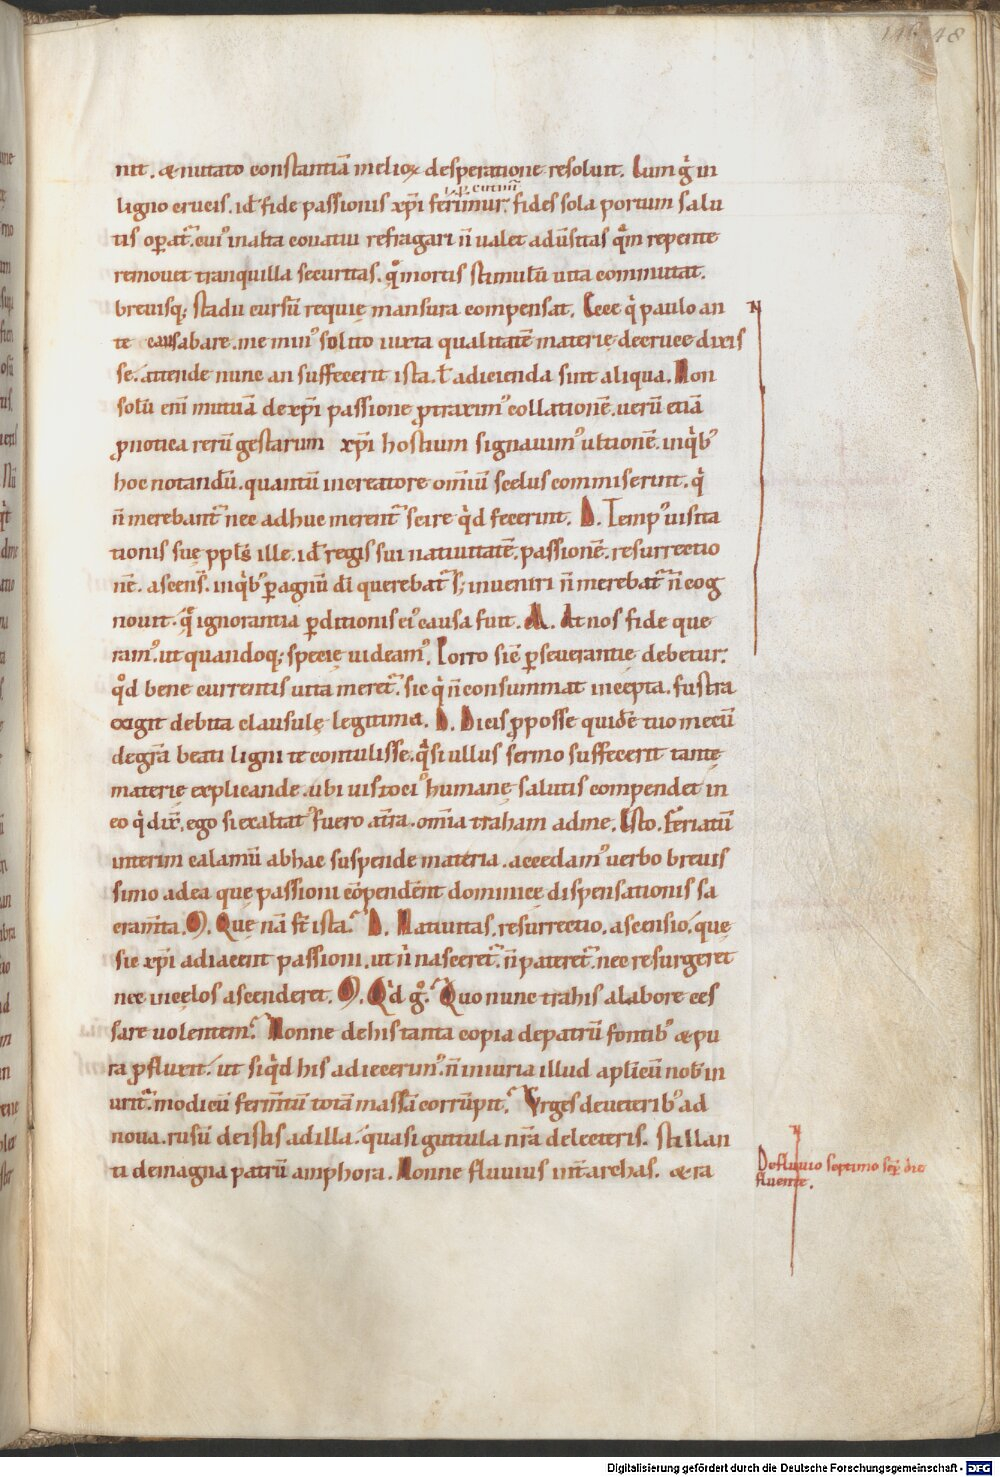 146 48
nit. & nutato constantiā melioꝝ desperatione resoluit. Cum g̊ in
ligno crucis. id ÷ fide passionis xp̄i ferimur. fides sola portum salu
tis opat᷑. cui᷒ in alta conatui refragari n̄ ualet aduersitas qm̄ repente
remouet tranquilla securitas. qm̄ mortis stimulū uita commutat.
breuisq; stadii cursū requiẹ mansura compensat. Ecce q̇ paulo an
te causabare. me min᷒ solito iuxta qualitatē materiẹ decreuee dixis
se. attende nunc an suffecerit ista. ł adicienda sint aliqua. Non
solū eni mutuā de xp̄i passione ꝓtraxim᷒ collationē. uerū etiā
ꝓnotica rerū gestarum xp̄i hostium signauim᷒ ultionē. in qib᷒
hoc notandū. quantū in creatore omiū scelus commiserint. q̇
n̄ merebant᷑ nec adhuc merent᷑ scire qd fecerint. D. Temp᷒ uisita
tionis suẹ ppłs ille. id ÷ regis sui natiuitatē. passionē. resurrectio
nē. ascens̄. in qib᷒ ꝑ agnū di querebat᷑ s; inueniri n̄ merebat᷑ n̄ cog
nouit. q̄ ignorantia ꝑditionis ei᷒ causa fuit. M. At nos fide que
ram᷒. ut quandoq; speciẹ uideam᷒. Porro sic ꝑseuerantiẹ debetur.
qd bene currentis uita meret᷑. sic q̇ n̄ consummat incepta. fustra
exigit debita clausulẹ legitima. D. Dicis ꝓ posse quidē tuo mecū
de gr̄a beati ligni te contulisse. q̄si ullus sermo suffecerit tantẹ
materiẹ explicande. ubi uis toci᷒ humanẹ salutis compendet in
eo q̇ dix̄. ego si exaltat᷒ fuero a tr̄a. omīa traham ad me. Esto. feriatū
interim calamū ab hac suspende materia. accedam᷒ uerbo breuis
simo ad ea que passioni cōpendent dominicẹ dispensationis sa
cram̄ta. M. Quẹ nā st̄ ista. D. Natiuitas. resurrectio. ascensio. quẹ
sic xp̄i adiacent passioni. ut n̄ nasceret᷑. n̄ pateret᷑. nec resurgeret
nec in cẹlos ascenderet. M. Qd g̊. Quo nunc trahis a labore ces
sare uolentem. Nonne de his tanta copia de patrū fontib᷒ & pu
ra ꝓfluxit. ut siqd his adiecerim᷒. n̄ iniuria illud aplicū nob̄ in
urit᷑. modicū fermtū totā massā corrūpit. Vrges de ueterib᷒ ad
noua. rusū de istis ad illa. quasi guttula nr̄a delecteris. stillan
ti de magna patrū amphora. Nonne fluuius int̄ arehas. & ra
De fluuio septimo
fluente.
Digitalisierung gefördert durch die Deutsche Forschungsgemeinschaft - DFG